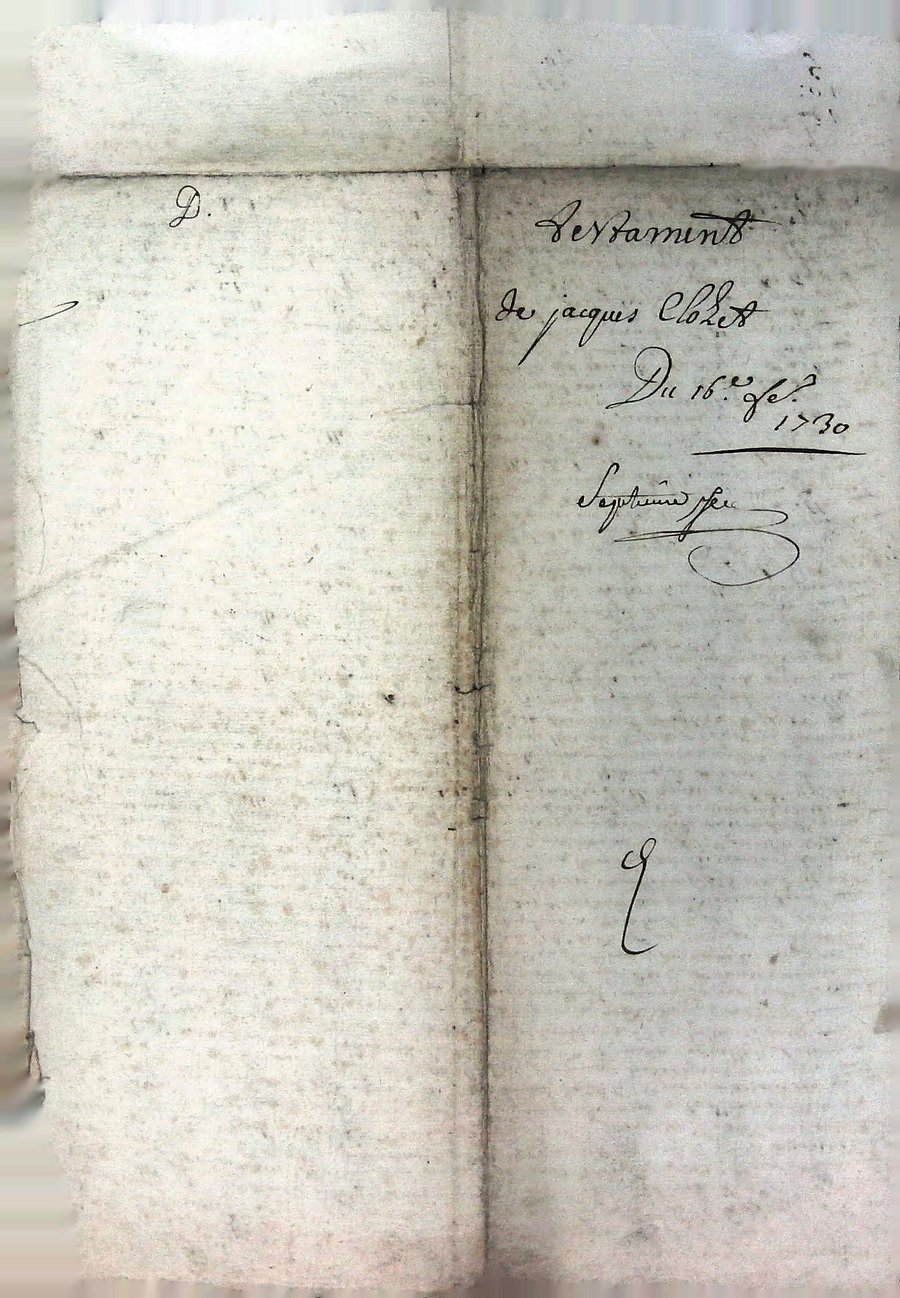 D.
testament
de jacques Clozet
Du 16.e fe.r
1730
Septieme